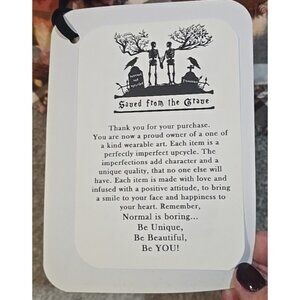 Saved from the Grave
Thank you for your purchase.
You are now a proud owner of a one of
a kind wearable art. Each item is a
perfectly imperfect upcycle. The
imperfections add character and a
unique quality, that no one else will
have. Each item is made with love and
infused with a positive attitude, to bring
a smile to your face and happiness to
your heart. Remember,
Normal is boring...
Be Unique,
Be Beautiful,
Be YOU!